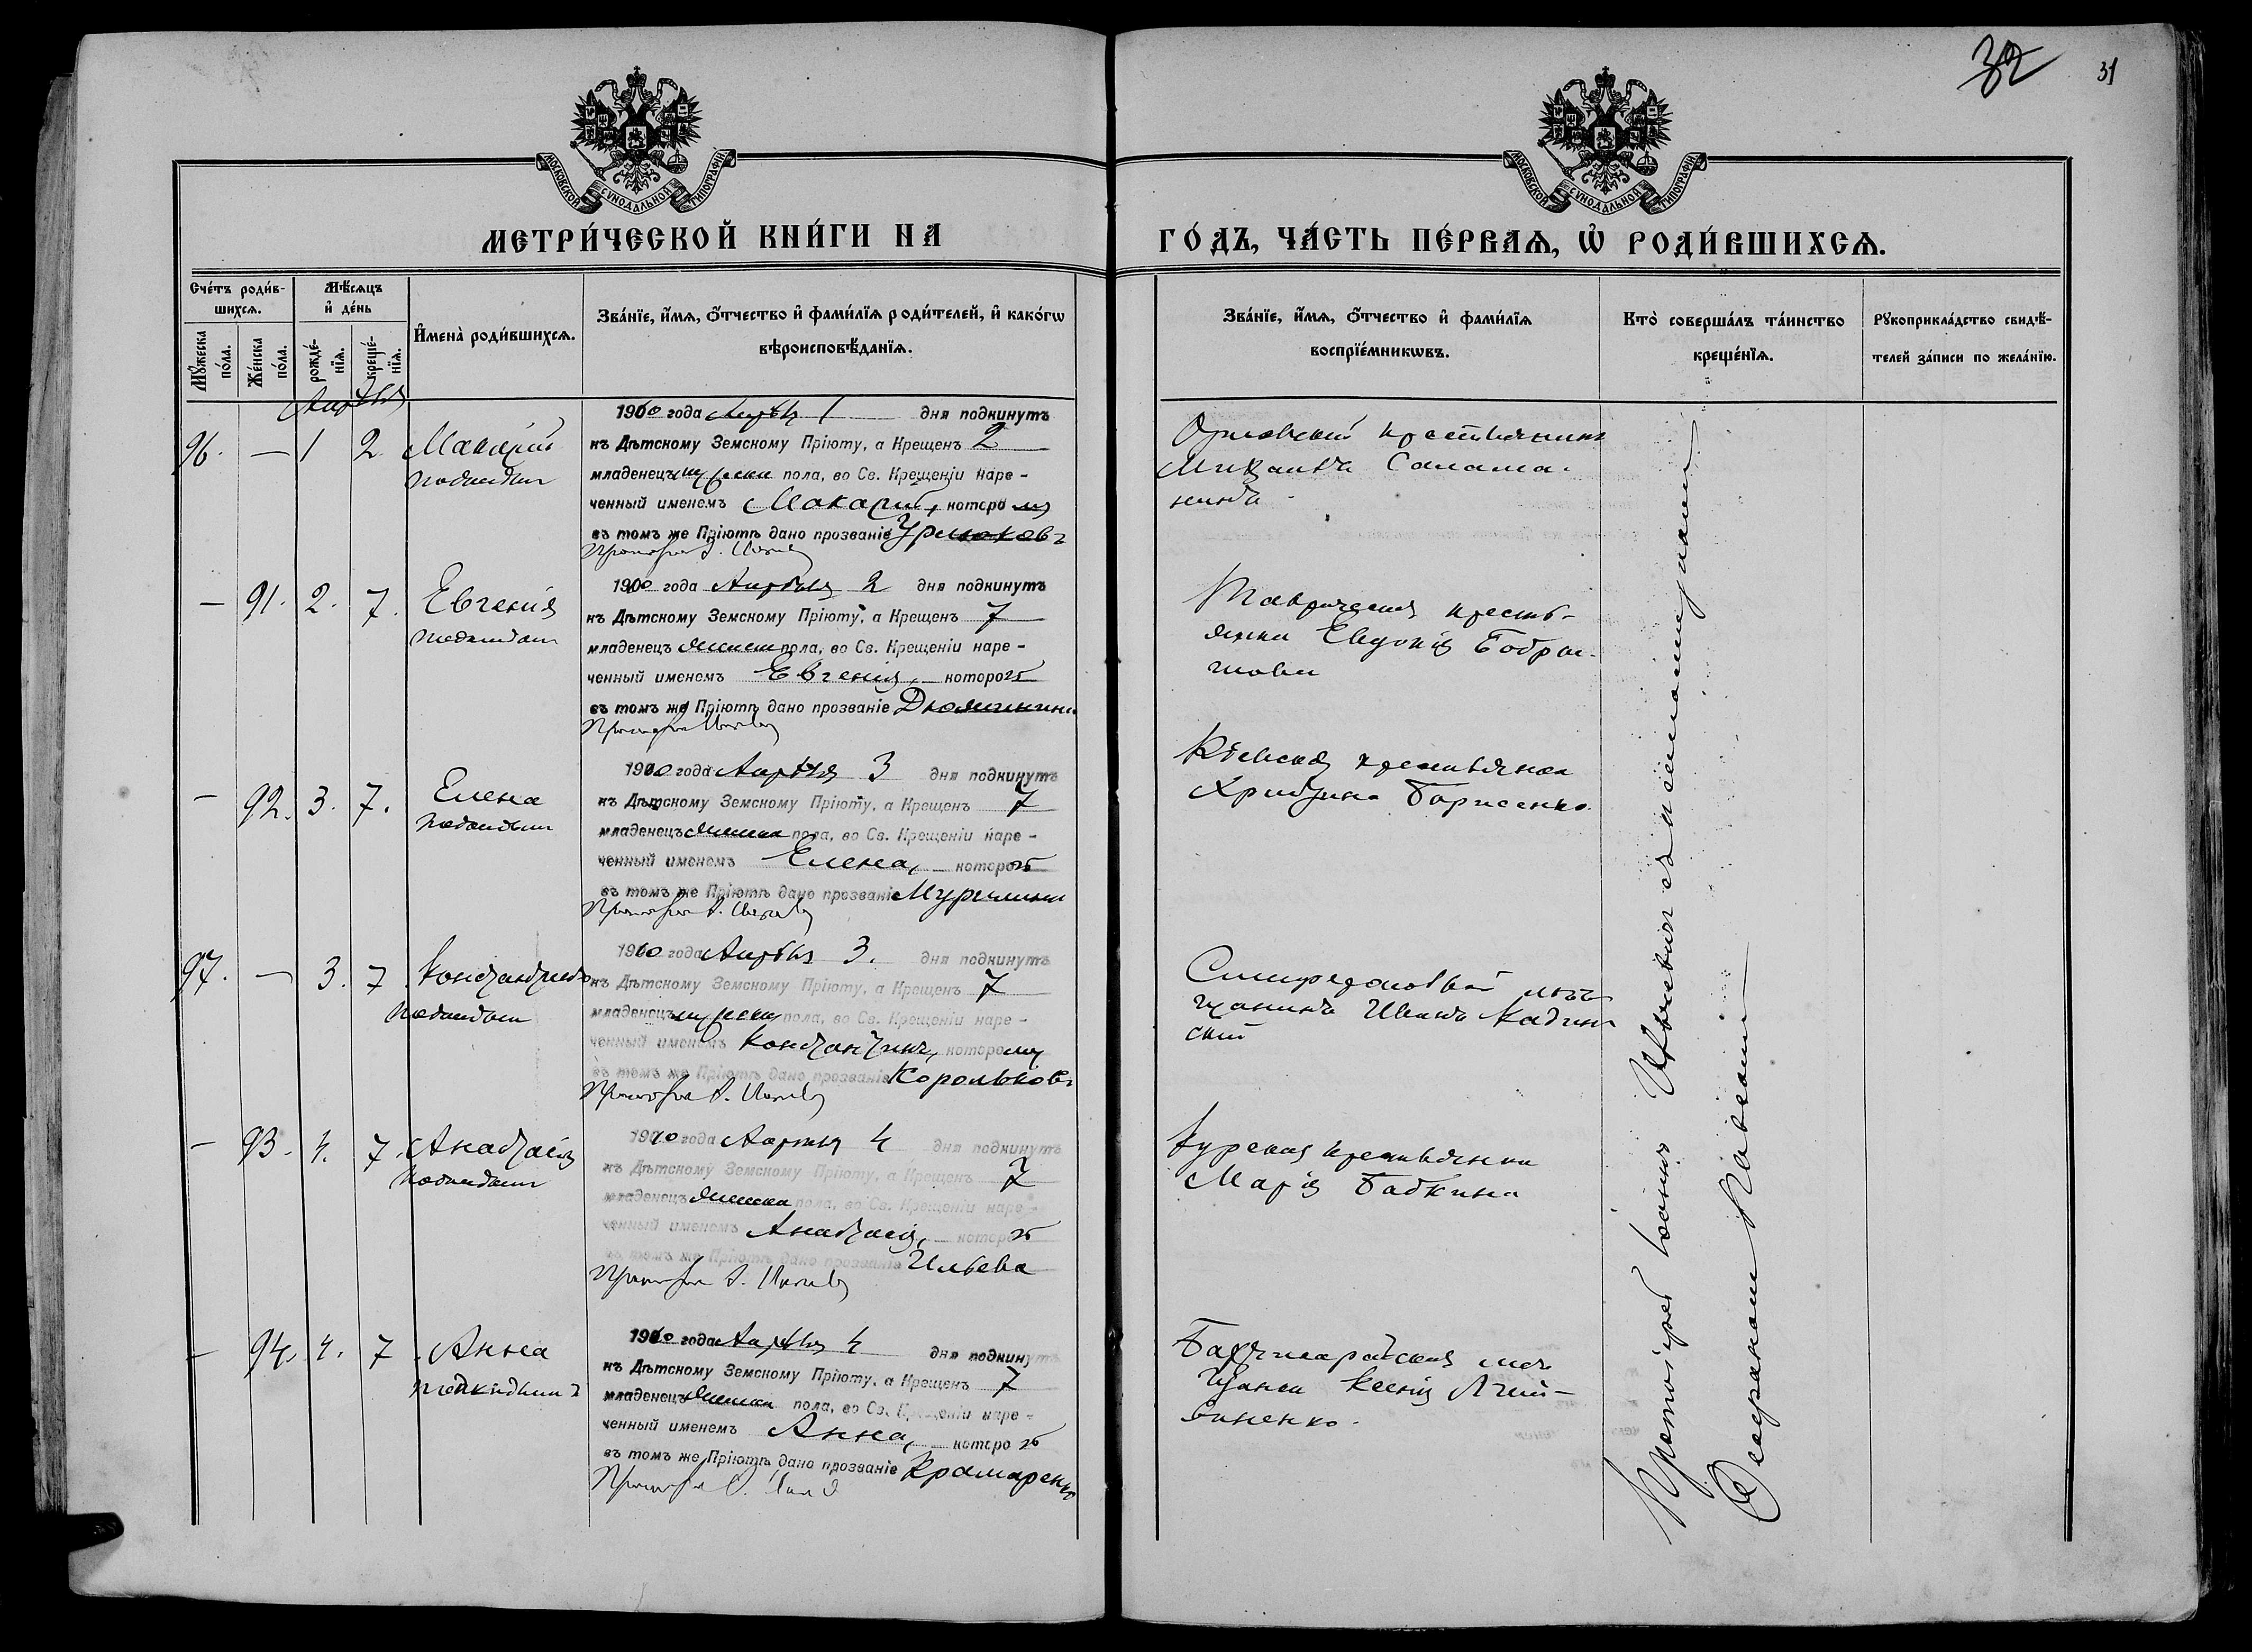 32 31
МОСКОВСКОЙ СѴНОДАЛЬНОЙ ТИПОГРАФІИ
МОСКОВСКОЙ СѴНОДАЛЬНОЙ ТИПОГРАФІИ
МЕТРИ́ЧЕСКОЙ КНИ́ГИ НА
ГО́ДЪ, ЧА́СТЬ ПЕ́РВАѦ, Ѽ РОДИ́ВШИХСѦ.
Сче́тъ роди́в-
шихсѧ.
Мꙋ́жеска по́ла.
Же́нска по́ла.
Мѣ́сѧцъ и҆ де́нь
рожде́-нїѧ.
креще́-нїѧ.
И҆мена̀ роди́вшихсѧ.
Зва́нїе, и҆́мѧ, ѻ҆́тчество и҆ фами́лїѧ роди́телей, и҆ како́гѡ
вѣроисповѣ́данїѧ.
Зва́нїе, и҆́мѧ, ѻ҆́тчество и҆ фами́лїѧ
воспрїе́мникѡвъ.
Кто̀ соверша́лъ та́инство
креще́нїѧ.
Рꙋкоприкла́дство свидѣ́-
телей за́писи по жела́нїю.
Апрѣля
96. — 1 2 Макарій
подкидыш
1910 года Апрѣля 1 дня подкинутъ
къ Дѣтскому Земскому Пріюту, а Крещенъ 2
младенецъ мужеска пола, во Св. Крещеніи наре-
ченный именемъ Макарій, которому
въ томъ же Пріютѣ дано прозваніе
Орловскій крестьянинъ
Михаилъ Салама-
нинъ
— 91. 2. 7. Евгенія
подкидыш
1910 года Апрѣля 2 дня подкинутъ
къ Дѣтскому Земскому Пріюту, а Крещенъ 7
младенецъ женска пола, во Св. Крещеніи наре-
ченный именемъ Евгенія, которой
въ томъ же Пріютѣ дано прозваніе
Таврическая кресть-
янка Евдокія
— 92. 3. 7. Елена
подкидыш
1910 года Апрѣля 3 дня подкинутъ
къ Дѣтскому Земскому Пріюту, а Крещенъ 7
младенецъ женска пола, во Св. Крещеніи наре-
ченный именемъ Елена, которой
въ томъ же Пріютѣ дано прозваніе
Кіевская крестьянка
Христина Борисенко
97. — 3. 7 Константинъ
подкидыш
1910 года Апрѣля 3. дня подкинутъ
къ Дѣтскому Земскому Пріюту, а Крещенъ 7
младенецъ мужеска пола, во Св. Крещеніи наре-
ченный именемъ Константинъ, которому
въ томъ же Пріютѣ дано прозваніе Корольковъ
Симферопольскій мѣ-
щанинъ Иванъ
скій
— 93. 4. 7. Анастасія
подкидыш
1910 года Апрѣля 4 дня подкинутъ
къ Дѣтскому Земскому Пріюту, а Крещенъ 7
младенецъ женска пола, во Св. Крещеніи наре-
ченный именемъ Анастасія, которой
въ томъ же Пріютѣ дано прозваніе Ильева
Курская крестьянка
Марія Бабкина
— 94. 4. 7 Анна
подкидышъ
1910 года Апрѣля 4 дня подкинутъ
къ Дѣтскому Земскому Пріюту, а Крещенъ 7
младенецъ женска пола, во Св. Крещеніи наре-
ченный именемъ Анна, которой
въ томъ же Пріютѣ дано прозваніе Крамаренко
Бахчисарайская мѣ-
щанка Ксенія
Протоіерей Іоаннъ съ псаломщикомъ